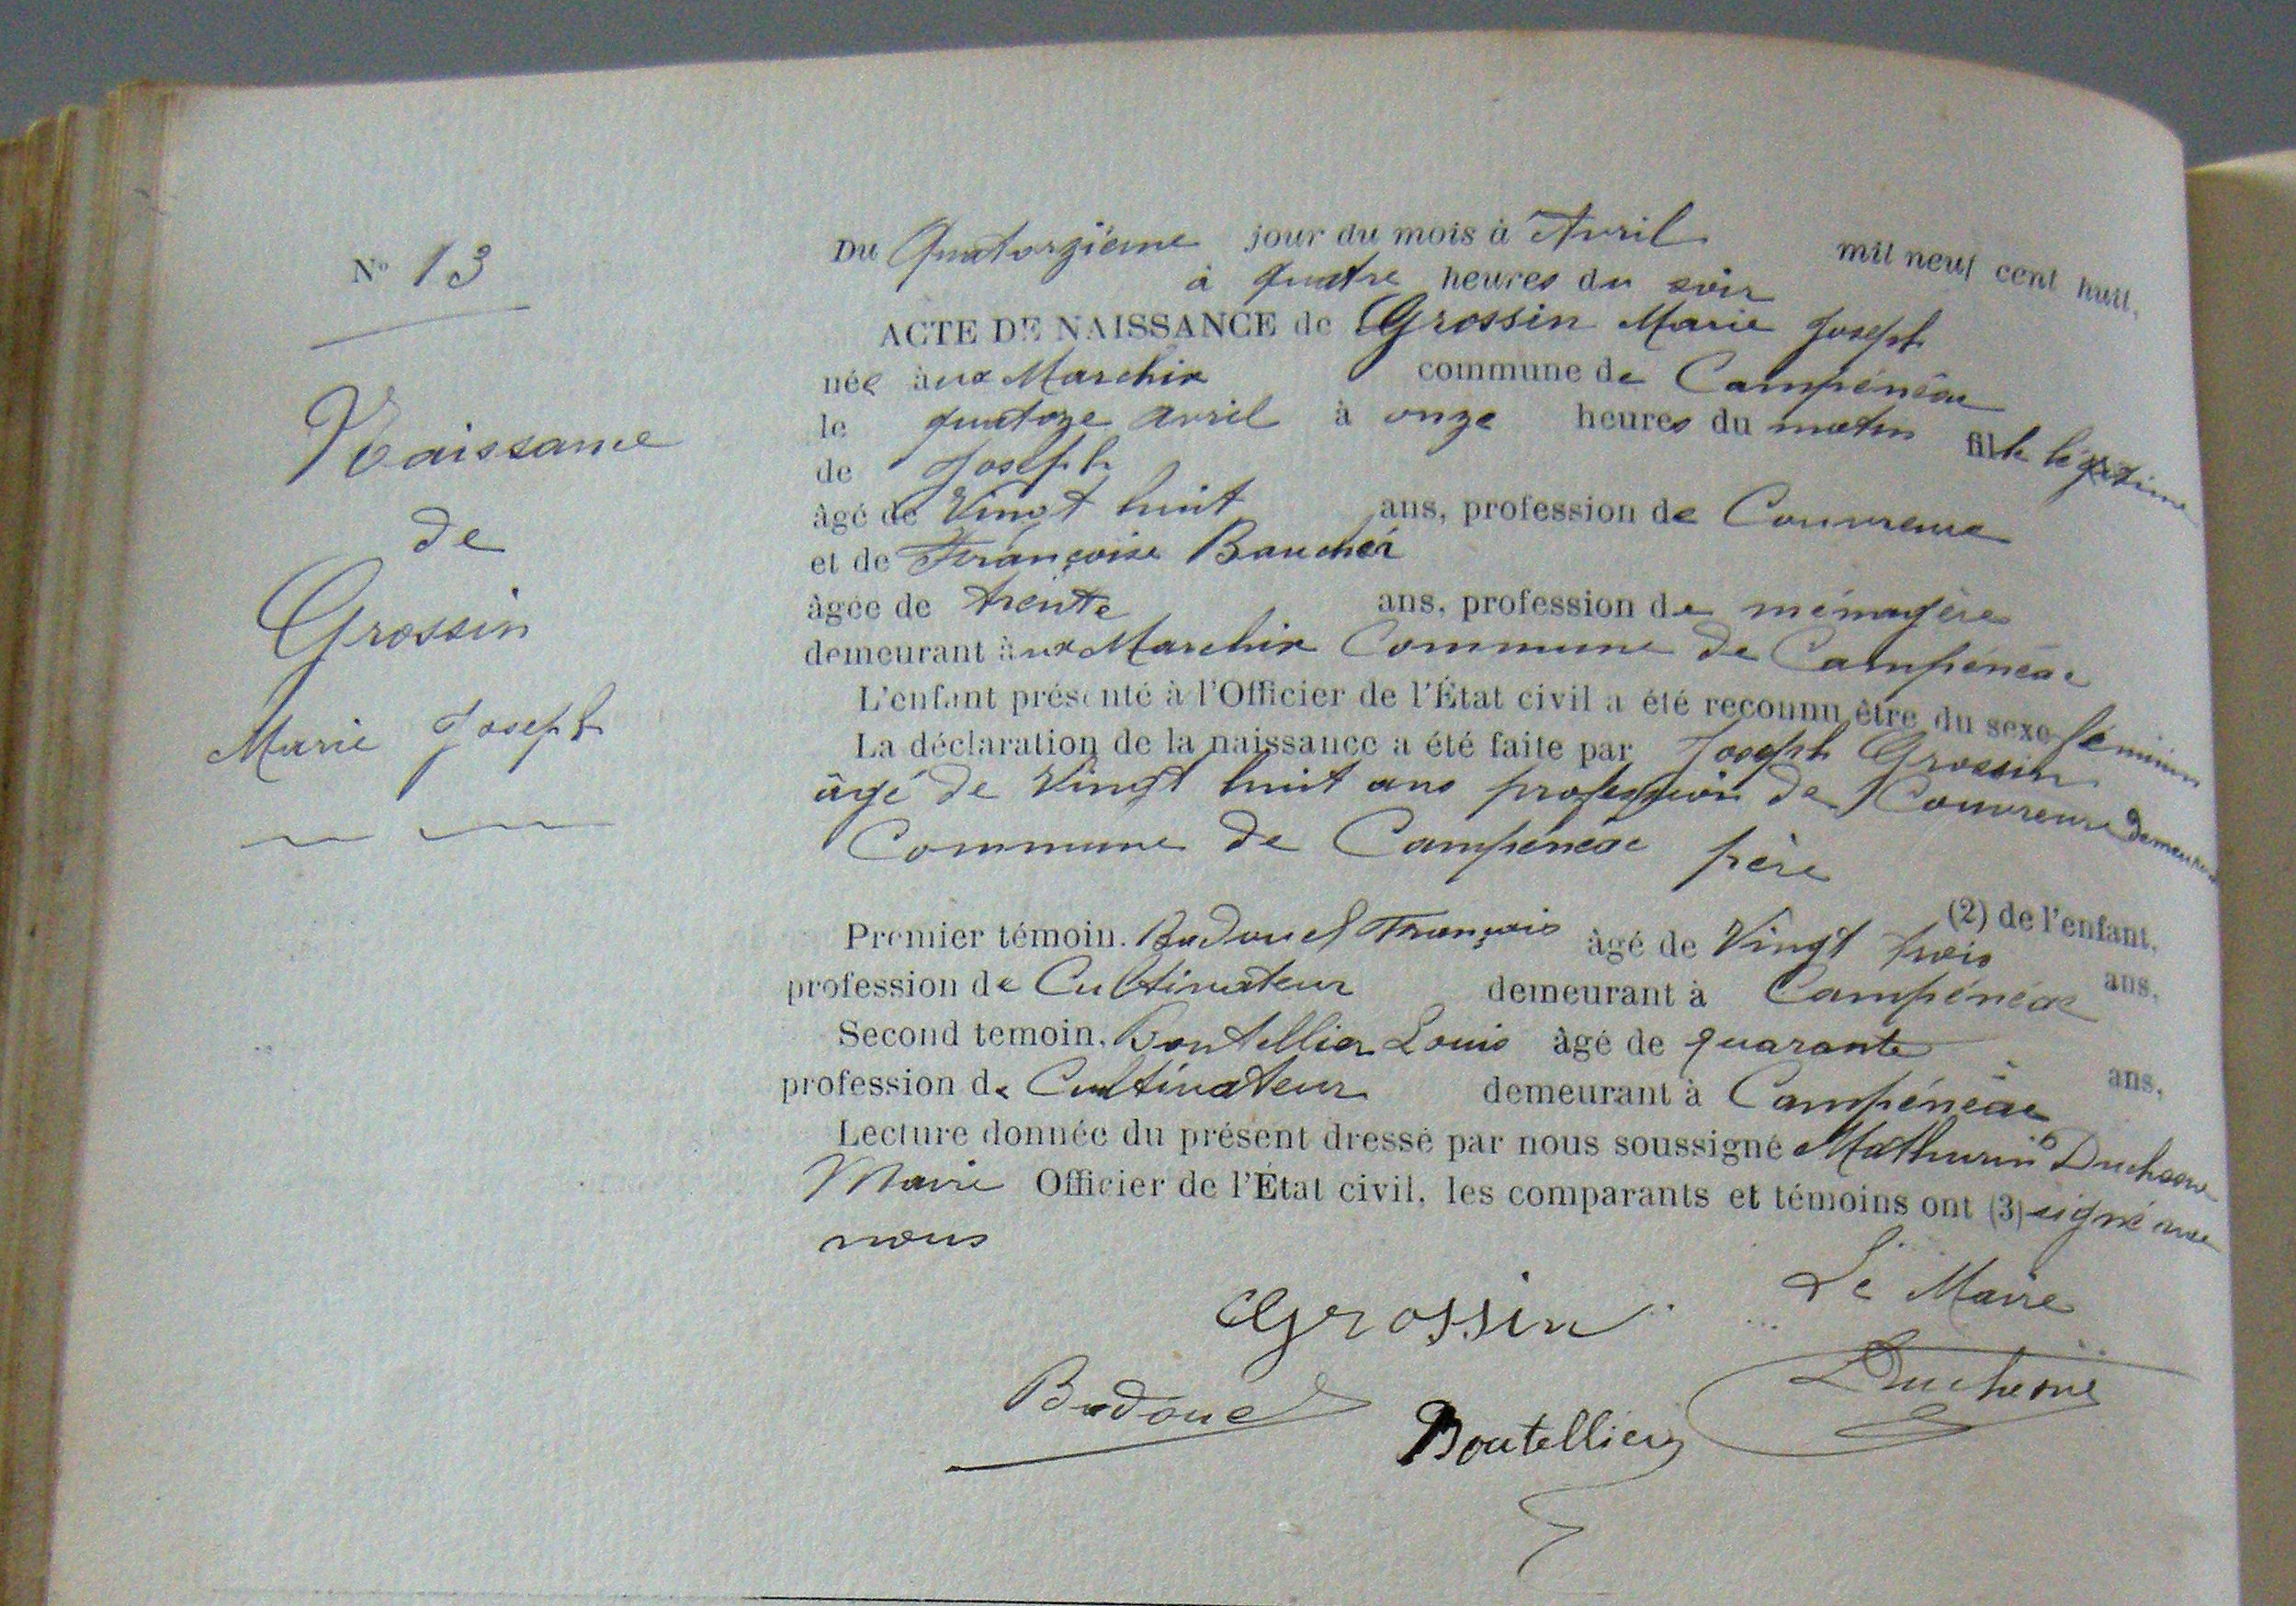 N° 13
Naissance
de
Grossin
Marie Joseph
Du Quatorzième jour du mois d'Avril mil neuf cent huit,
à quatre heures du soir
ACTE DE NAISSANCE de Grossin Marie Joseph
née aux Marchix commune de Campénéac
le quatoze avril à onze heures du matin fille légitime
de Joseph
âgé de Vingt huit ans, profession de Couvreur
et de Françoise Baucher
âgée de trente ans, profession de ménagère
demeurant aux Marchix Commune de Campénéac
L'enfant présenté à l'Officier de l'État civil a été reconnu être du sexe féminin
La déclaration de la naissance a été faite par Joseph Grossin
âgé de Vingt huit ans profession de Couvreur demeurant
Commune de Campénéac père
(2) de l'enfant.
Premier témoin. Badouel François âgé de Vingt trois ans,
profession de Cultivateur demeurant à Campénéac
Second temoin, Boutellier Louis âgé de quarante ans,
profession de Cultivateur demeurant à Campénéac
Lecture donnée du présent dressé par nous soussigné Mathurin Duchesne
Maire Officier de l'État civil, les comparants et témoins ont (3) signé avec
nous
Le Maire
Grossin
Duchesne
Badouel
Boutellier